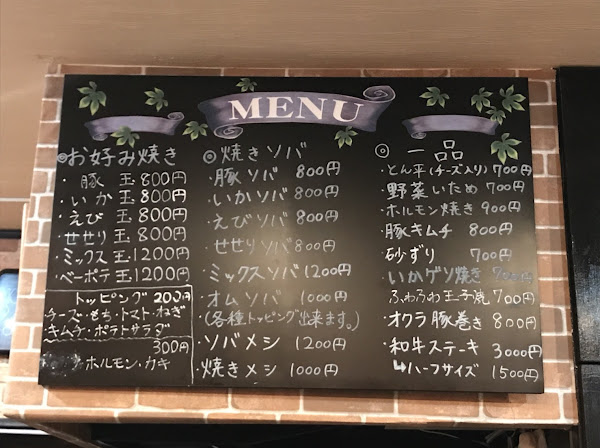 MENU
◎お好み焼き
・豚 玉 800円
・いか 玉 800円
・えび 玉 800円
・せせり 玉 800円
・ミックス 玉 1200円
・ベーポテ玉 1200円
トッピング 200円
チーズ・もち・トマト・ねぎ
キムチ・ポテトサラダ
300円
ホルモン・カキ
◎焼きソバ
・豚ソバ 800円
・いかソバ 800円
・えびソバ 800円
・せせりソバ 800円
・ミックスソバ 1200円
・オムソバ 1000円
(各種トッピング出来ます。)
・ソバメシ 1200円
・焼きメシ 1000円
◎一品
・とん平(チーズ入り) 700円
・野菜いため 700円
・ホルモン焼き 900円
・豚キムチ 800円
・砂ずり 700円
・いかゲソ焼き
・ふわふわ玉子焼 700円
・オクラ豚巻き 800円
・和牛ステーキ 3000円
↳ハーフサイズ 1500円